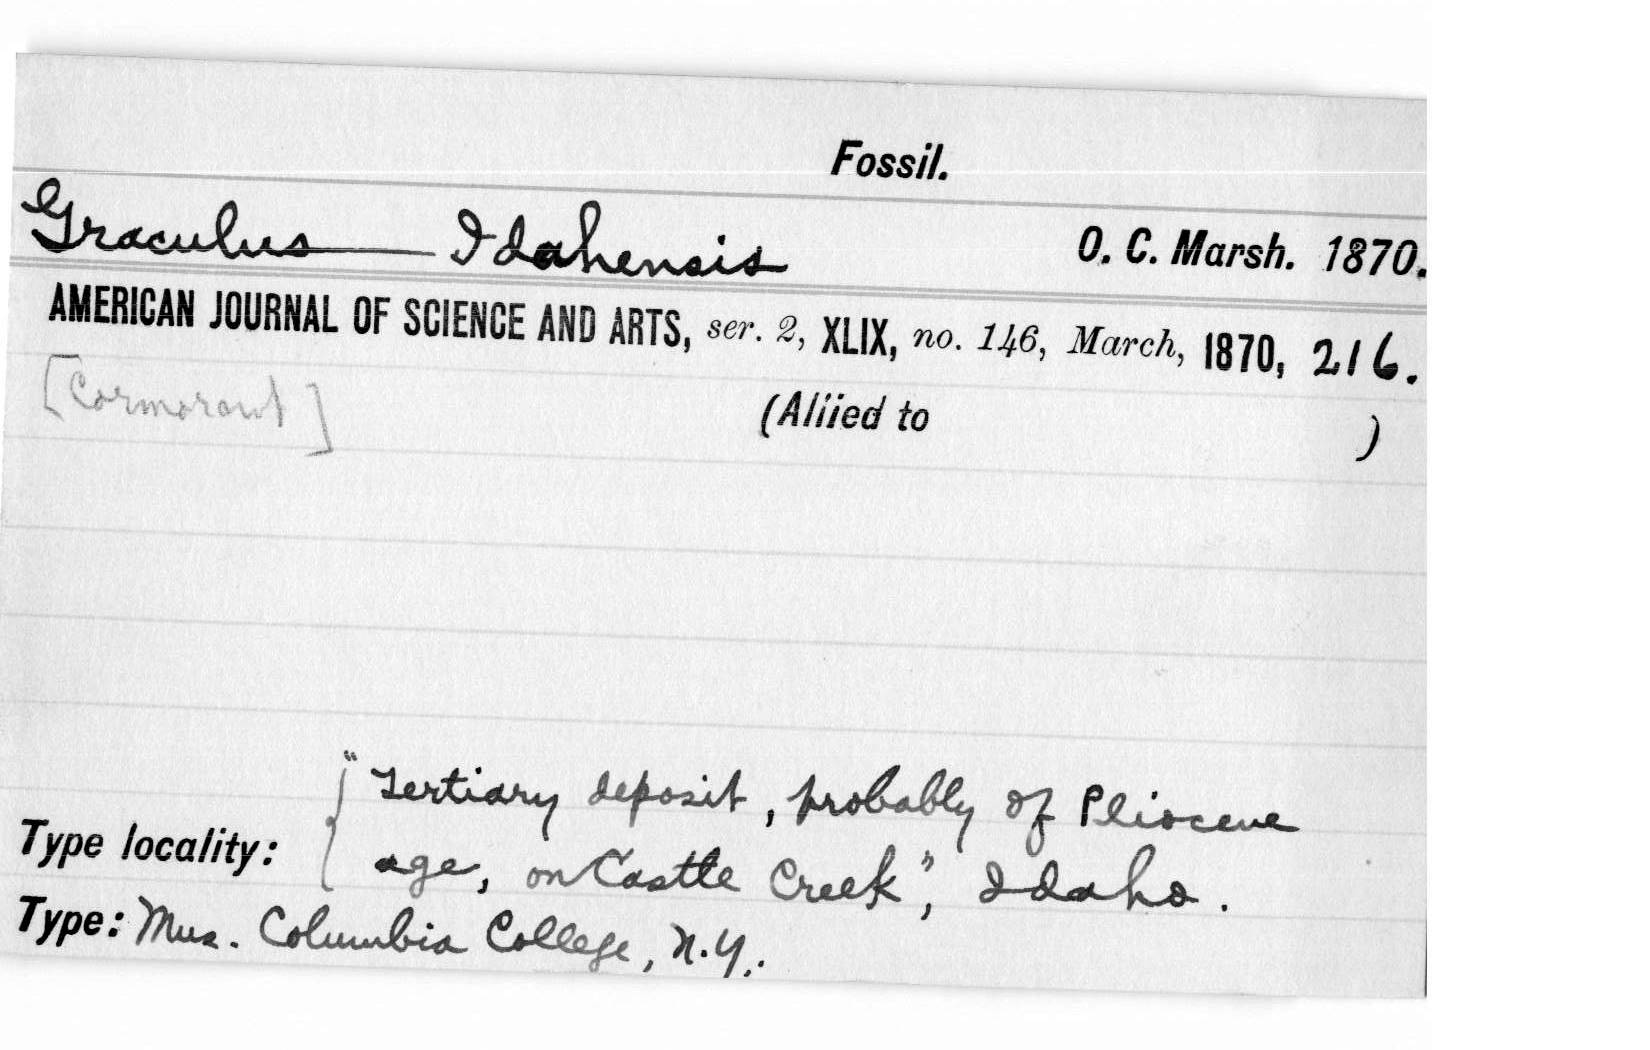 Fossil.
Graculus Idahensis O. C. Marsh. 1870.
AMERICAN JOURNAL OF SCIENCE AND ARTS, ser. 2, XLIX, no. 146, March, 1870, 216.
[Cormorant] (Allied to )
"Tertiary deposit, probably of Pliocene
Type locality: age, on Castle Creek", Idaho.
Type: Mus. Columbia College, N.Y.